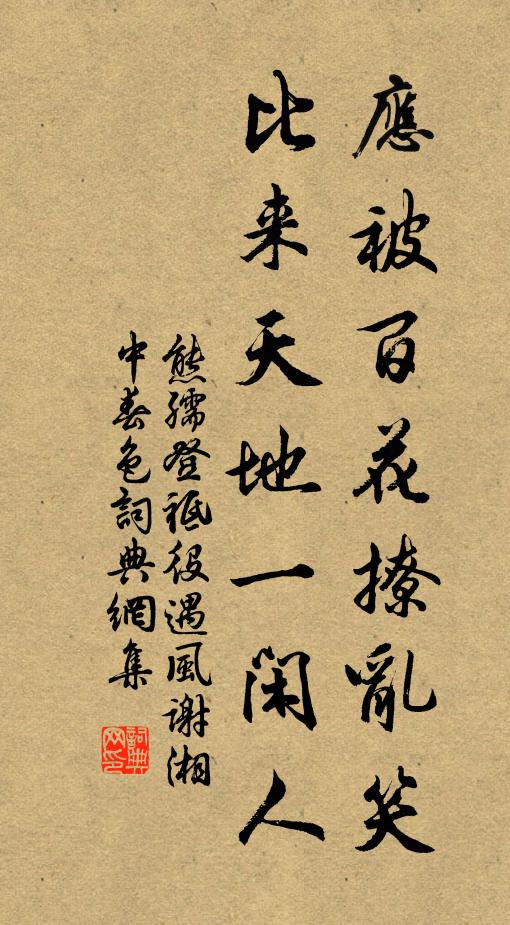 應被百花撩亂笑
比来天地一閑人
熊孺登祗役遇風謝湘
中春色詞典網集
詞典网印